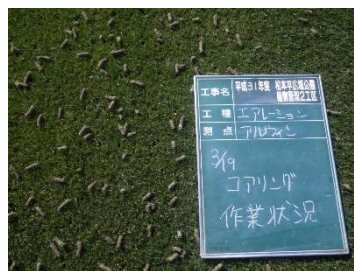 工事名 平成31年度 松本平広域公園
植物管理2工区
工種 エアレーション
測点 アルウィン
3/19
コアリング
作業状況